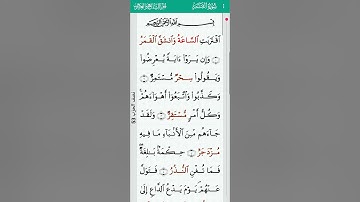 سُورَةُ القَمَرِ
1
بِسْمِ ٱللَّهِ ٱلرَّحْمَٰنِ ٱلرَّحِيمِ
ٱقْتَرَبَتِ ٱلسَّاعَةُ وَٱنشَقَّ ٱلْقَمَرُ
١ وَإِن يَرَوْا۟ ءَايَةً يُعْرِضُوا۟
وَيَقُولُوا۟ سِحْرٌ مُّسْتَمِرٌّ ٢
وَكَذَّبُوا۟ وَٱتَّبَعُوٓا۟ أَهْوَآءَهُمْ
وَكُلُّ أَمْرٍ مُّسْتَقِرٌّ ٣ وَلَقَدْ
جَآءَهُم مِّنَ ٱلْأَنۢبَآءِ مَا فِيهِ
مُزْدَجَرٌ ٤ حِكْمَةٌۢ بَٰلِغَةٌ
فَمَا تُغْنِ ٱلنُّذُرُ ٥ فَتَوَلَّ
عَنْهُمْ يَوْمَ يَدْعُ ٱلدَّاعِ إِلَىٰ
نصف الحزب 53